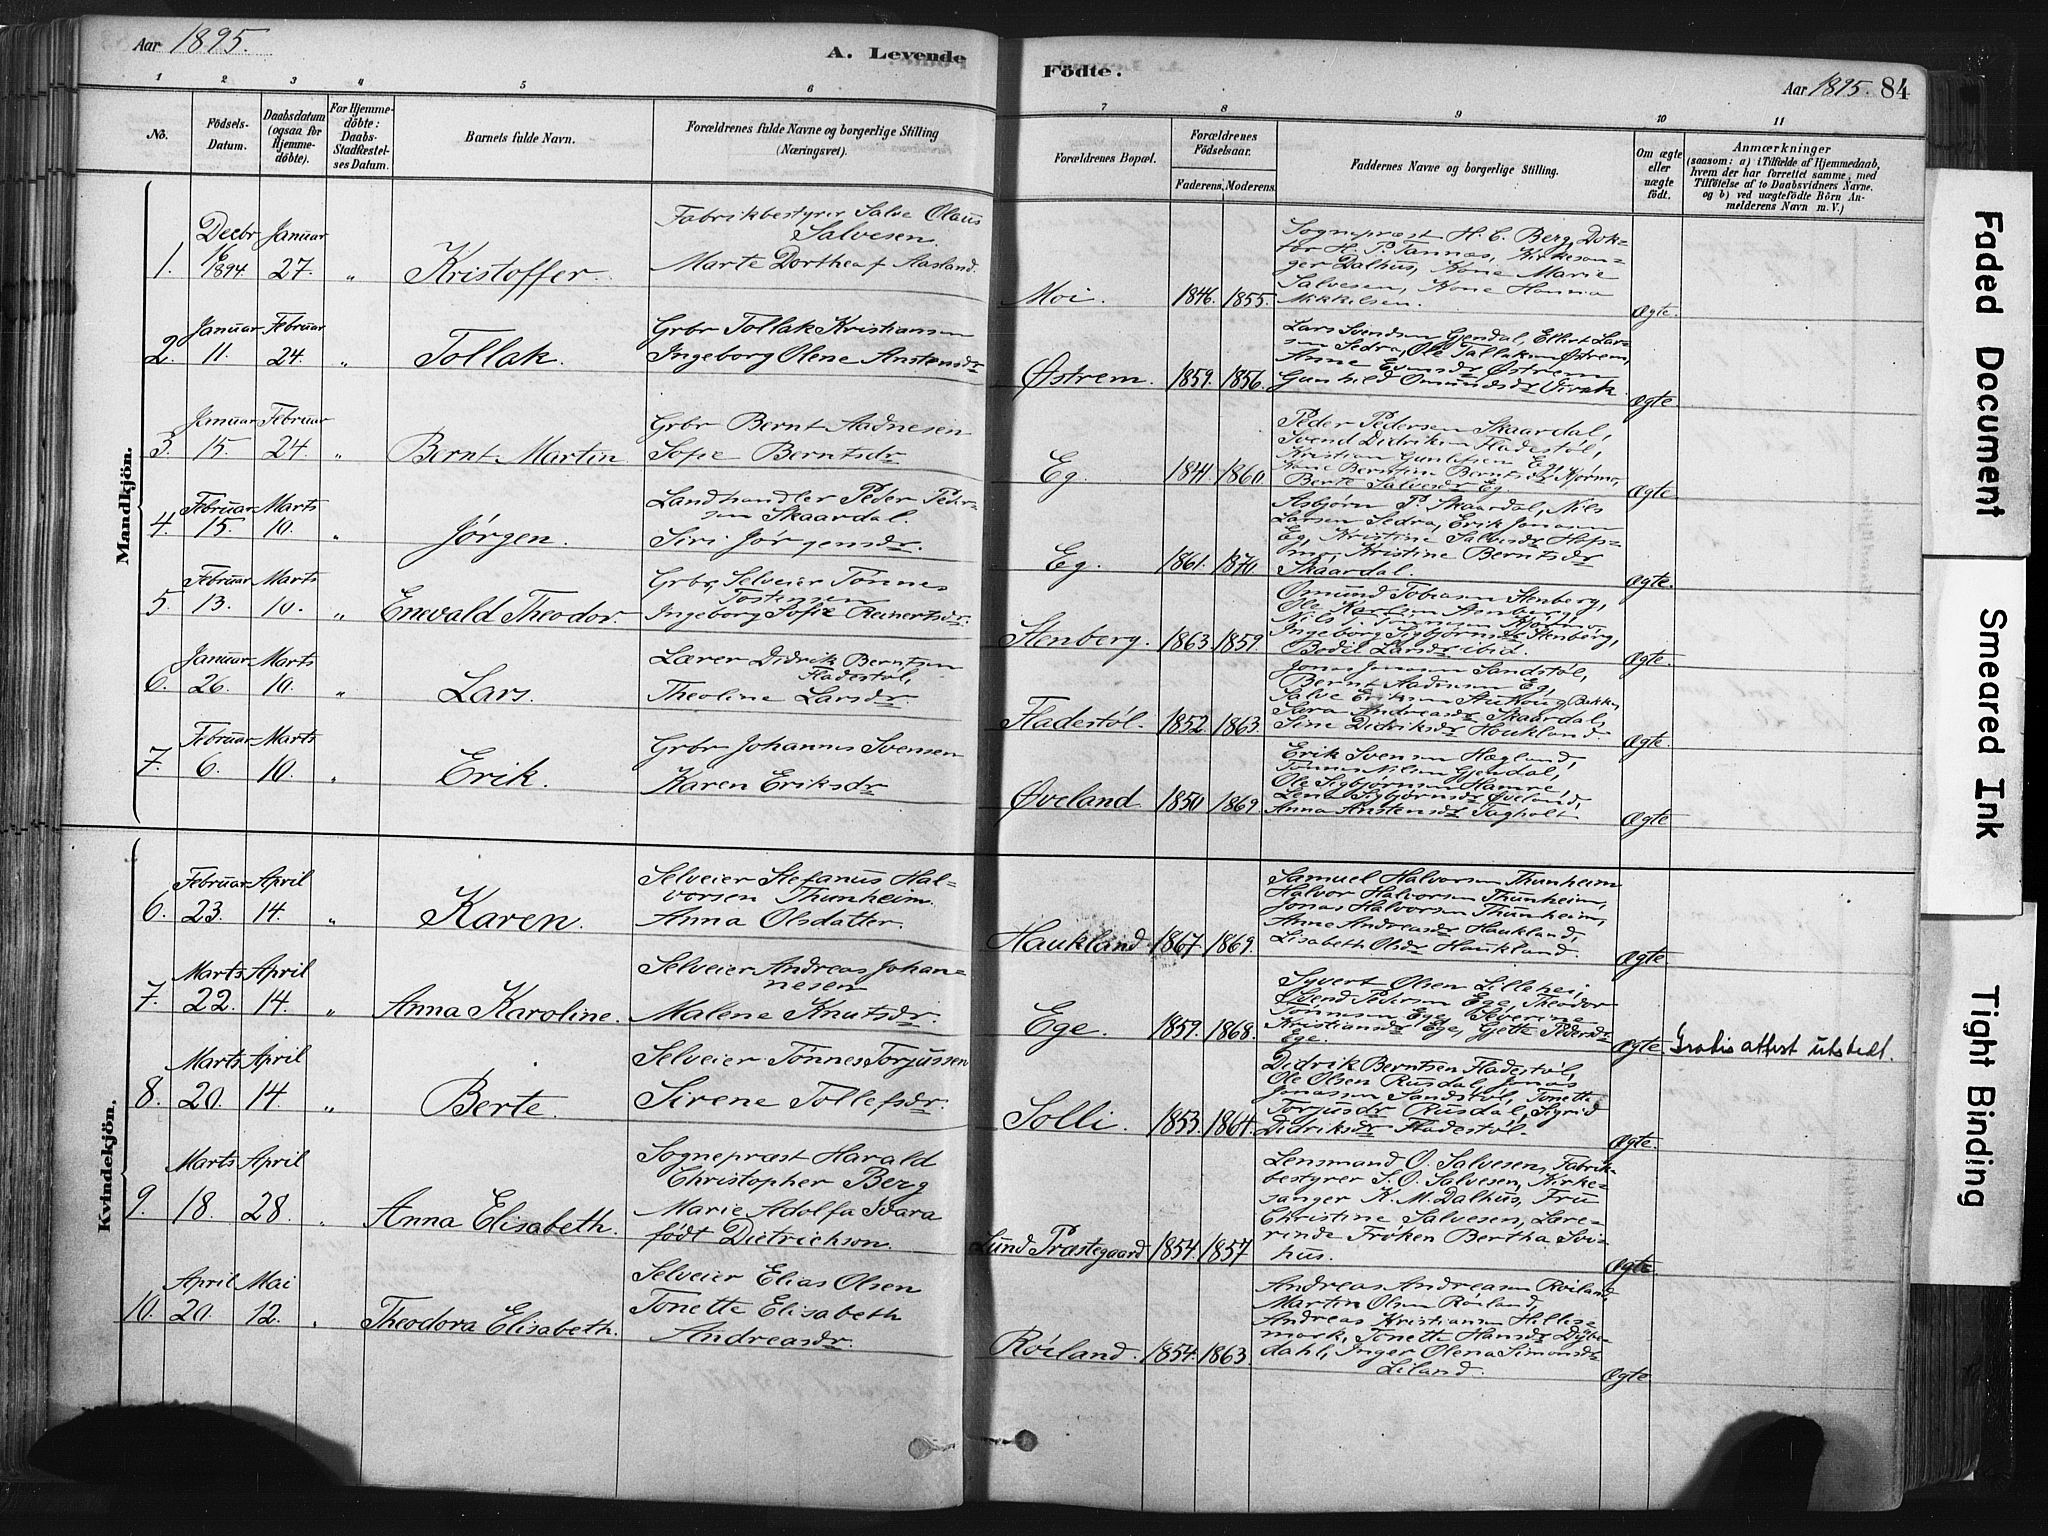 Aar 1895.
A. Levende
Födte.
Aar 1895. 84
1 2 3 4 5 6
7 8 9 10 11
No.
Födsels-
Datum.
Daabsdatum
(ogsaa for
Hjemme-
döbte).
For Hjemme-
döbte:
Daabs-
Stadfæstel-
ses Datum.
Barnets fulde Navn.
Forældrenes fulde Navne og borgerlige Stilling
(Næringsvei).
Forældrenes Bopæl.
Forældrenes
Födselsaar.
Faderens. Moderens.
Faddernes Navne og borgerlige Stilling.
Om ægte
eller
uægte
födt.
Anmærkninger
(saasom: a) i Tilfælde af Hjemmedaab,
hvem der har forrettet samme, med
Tilföielse af to Daabsvidners Navne,
og b) ved uægtefödte Börn An-
melderens Navn m. V.)
Mandkjön.
1. Decbr 6 1894 Januar 27. „ Kristoffer.
Fabrikbestyrer Salve Olaus
Salvesen.
Marte Dorthea f. Aasland.
Moi. 1846. 1855.
Sogneprest H. C. Berg, Dok-
tor H. P. Tannæs, Kirkesan-
ger Dalhus, Kone Marie
Salvesen, Kone Hanna
Mikkelsen.
Ægte.
2. Januar 11. Februar 24. „ Tollak.
Grbr Tollak Kristiansen
Ingeborg Olene Anstensdr
Østrem. 1859. 1856.
Lars Svendsen Gjendal, Eilert Lar-
sen Sedra, Ole Tallaksen Østrem,
Anne Evensdr Østrem
Gunhild Omundsdr
Ægte.
3. Januar 15. Februar 24. „ Bernt Martin
Grbr Bernt Aadnesen
Sofie Berntsdr
Eg. 1841. 1860.
Peder Pedersen Skaardal,
Svend Didriksen Fladestøl,
Kristian Gunlefsen Eg,
Kone Berntine Berntsdr Kjørmo,
Berte Salvesdr Eg.
Ægte.
4. Februar 15. Marts 10. „ Jørgen.
Landhandler Peder Peder-
sen Skaardal.
Siri Jørgensdr.
Eg. 1861. 1870.
Asbjørn P. Skaardal, Nils
Larsen Sedra, Erik Jonasen
Eg, Kristine Salvesdr
Kristine Berntsdr
Skaardal.
Ægte.
5. Februar 13. Marts 10. „ Enevald Theodor.
Grbr, Selveier Tønnes
Tostensen
Ingeborg Sofie Reinertsdr.
Stenberg. 1863. 1859.
Omund Tobiasen Stenberg,
Ole Karlsen
Nils T. Kjørmo
Ingeborg Sigbjørnsdr Stenberg,
Bodil Larsdr ibid.
Ægte.
6. Januar 26. Marts 10. „ Lars.
Lærer Didrik Berntsen
Fladestøl,
Theoline Larsdr.
Fladestøl. 1852. 1863.
Jonas Jonasen Sandstøl,
Bernt Aadnesen Eg,
Salve Eriksen
Sara Andreasdr Skaardal,
Sine Didriksdr Haukland.
Ægte.
7. Februar 6. Marts 10. „ Erik.
Grbr Johannes Svensen
Karen Eriksdr
Øveland 1850 1869
Erik Svensen Hægland,
Tønnes Nilsen Gjendal,
Ole Sigbjørnsen Hamre,
Lena Sigbjørnsdr Øveland,
Anna Anstensdr Fagholt
Ægte
Kvindekjön.
6. Februar 23. April 14. „ Karen.
Selveier Stefanus Hal-
vorsen Thunheim.
Anna Olsdatter.
Haukland 1867 1869.
Samuel Halvorsen Thunheim
Halvor Halvorsen Thunheim,
Jonas Halvorsen Thunheim,
Anne Andreasdr Haukland,
Lisabeth Olsdr Haukland.
Ægte.
7. Marts 22. April 14. „ Anna Karoline.
Selveier Andreas Johan-
nesen
Malene Knutsdr.
Ege. 1859. 1868.
Syvert Olsen Lillehei,
Svend Pedersen Ege, Theodor
Tønnesen Ege, Severine
Kristiansdr Ege, Gjette Pedersdr
Ege.
Ægte. Gratis attest utstedt.
8. Marts 20. April 14. „ Berte.
Selveier Tønnes Torjussen
Sirene Tollefsdr.
Solli. 1853. 1864.
Didrik Berntsen Fladestøl,
Ole Olsen Rusdal, Jonas
Jonassen Sandstøl, Tonette
Torjusdr Rusdal, Sigrid
Didriksdr Fladestøl.
Ægte.
9. Marts 18. April 28. „ Anna Elisabeth.
Sogneprest Harald
Christopher Berg
Marie Adolfa Svara
født Dietrichson.
Lund Præstegaard 1854. 1857
Lensmand O. Salvesen, Fabrik-
bestyrer S. O. Salvesen, Kirke-
sanger K. M. Dalhus, Fru
Christine Salvesen, Lære-
rinde Frøken Bertha Svi-
hus.
Ægte.
10. April 20. Mai 12. „ Theodora Elisabeth.
Selveier Elias Olsen
Tonette Elisabeth
Andreasdr.
Røiland. 1854. 1863.
Andreas Andreasen Røiland,
Martin Olsen Røiland,
Andreas Kristiansen Helles-
mark, Tonette Hansdr Dybe-
dahl, Inger Olena Simonsdr
Liland.
Ægte
Faded Document
Smeared Ink
Tight Binding